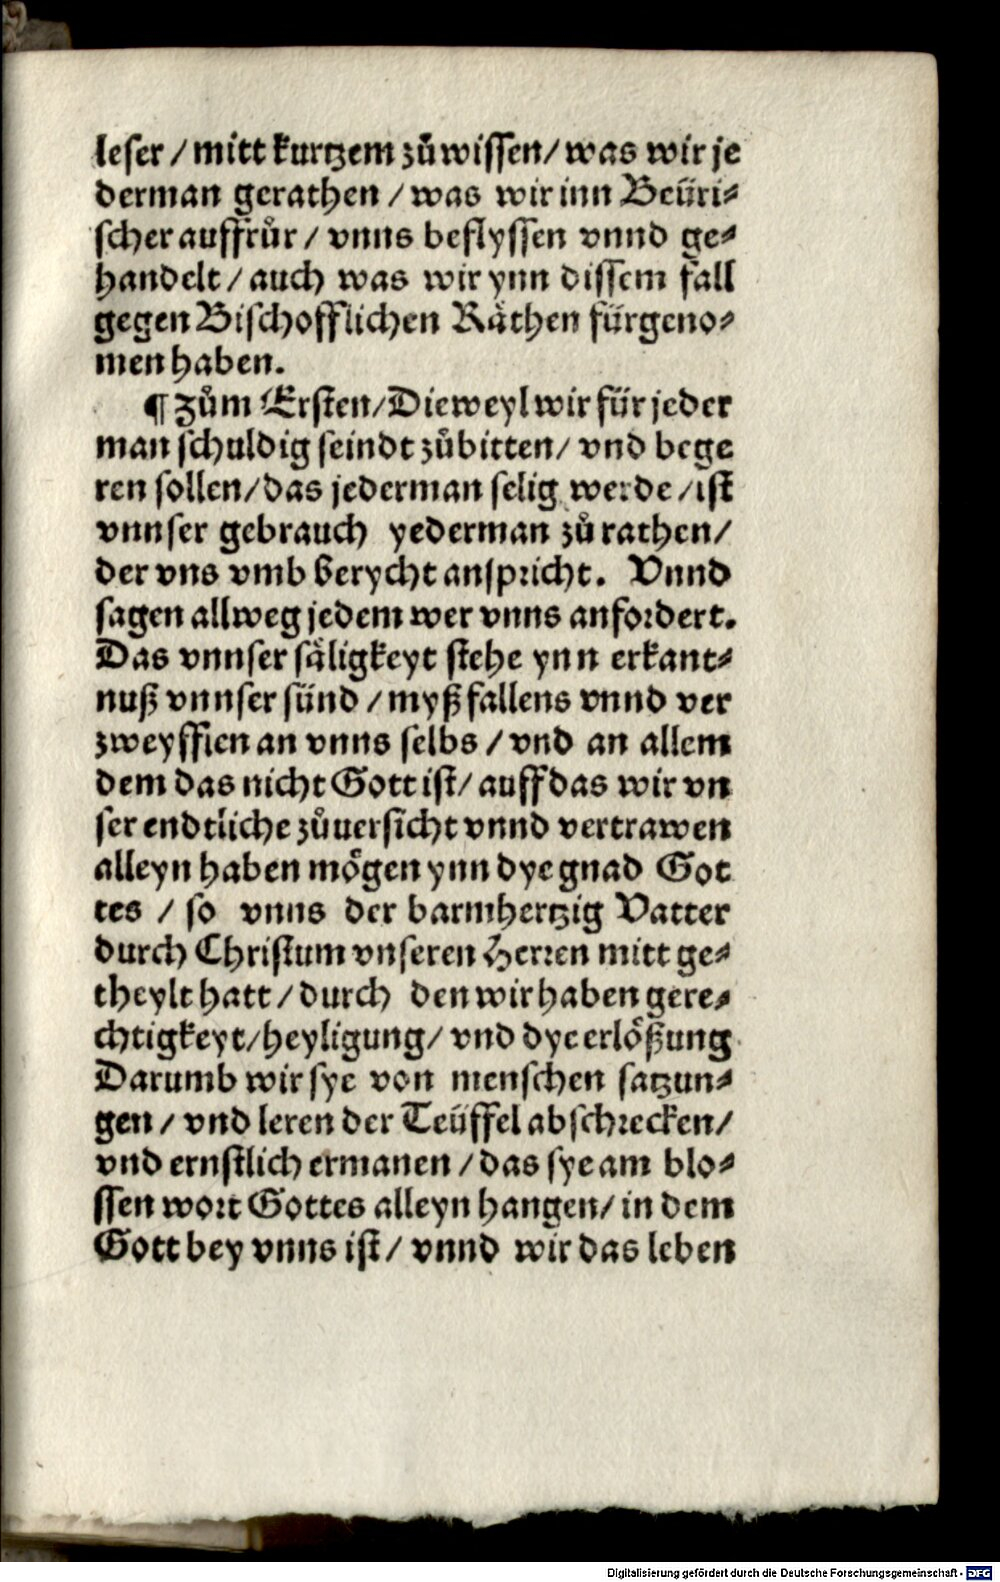 leser / mitt kurtzem zů wissen / was wir je
derman gerathen / was wir inn Beüri⸗
scher auffrůr / vnns beflyssen vnnd ge⸗
handelt / auch was wir ynn dissem fall
gegen Bischofflichen Räthen fürgeno⸗
men haben.
¶ Zům Ersten / Dieweyl wir für jeder
man schuldig seindt zůbitten / vnd bege
ren sollen / das jederman selig werde / ist
vnnser gebrauch yederman zů rathen /
der vns vmb berycht anspricht. Vnnd
sagen allweg jedem wer vnns anfordert.
Das vnnser säligkeyt stehe ynn erkant⸗
nuß vnnser sünd / myßfallens vnnd ver
zweyfflen an vnns selbs / vnd an allem
dem das nicht Gott ist / auff das wir vn
ser endtliche zůuersicht vnnd vertrawen
alleyn haben mögen ynn dye gnad Got
tes / so vnns der barmhertzig Vatter
durch Christum vnseren Herren mitt ge⸗
theylt hatt / durch den wir haben gere⸗
chtigkeyt / heyligung / vnd dye erlößung
Darumb wir sye von menschen satzun⸗
gen / vnd leren der Teüffel abschrecken /
vnd ernstlich ermanen / das sye am blo⸗
ssen wort Gottes alleyn hangen / in dem
Gott bey vnns ist / vnnd wir das leben
Digitalisierung gefördert durch die Deutsche Forschungsgemeinschaft - DFG